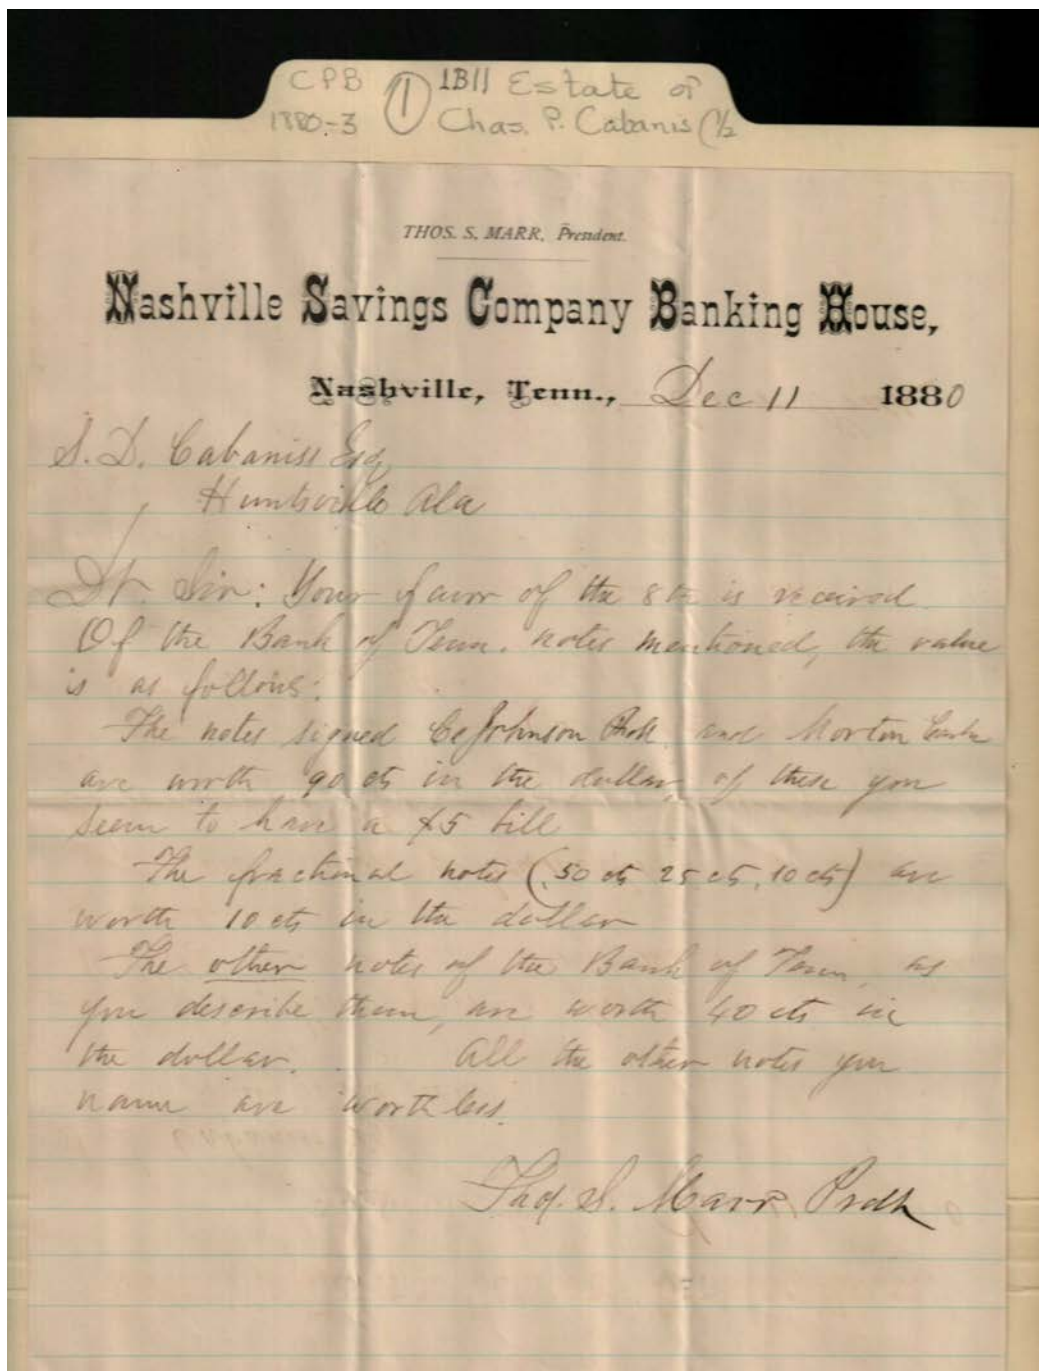 CPB ① 1B11 Estate of
1880-3 Chas. P. Cabanis (1/2
THOS. S. MARR, President.
Nashville Savings Company Banking House,
Nashville, Tenn., Dec 11 1880
S. D. Cabaniss Esq
Huntsville Ala
Dr. Sir: Your favor of the 8th is received.
Of the Bank of Tenn. notes mentioned, the value
is as follows:
The notes signed Johnson and Morton Cash
are worth 90 cts in the dollar, of these you
seem to have a $5 bill
The fractional notes (.50 cts 25 cts, 10 cts) are
worth 10 cts in the dollar
The other notes of the Bank of Tenn, as
you describe them, are worth 40 cts in
the dollar. All the other notes you
name are worthless.
Thos. S. Marr, Prest